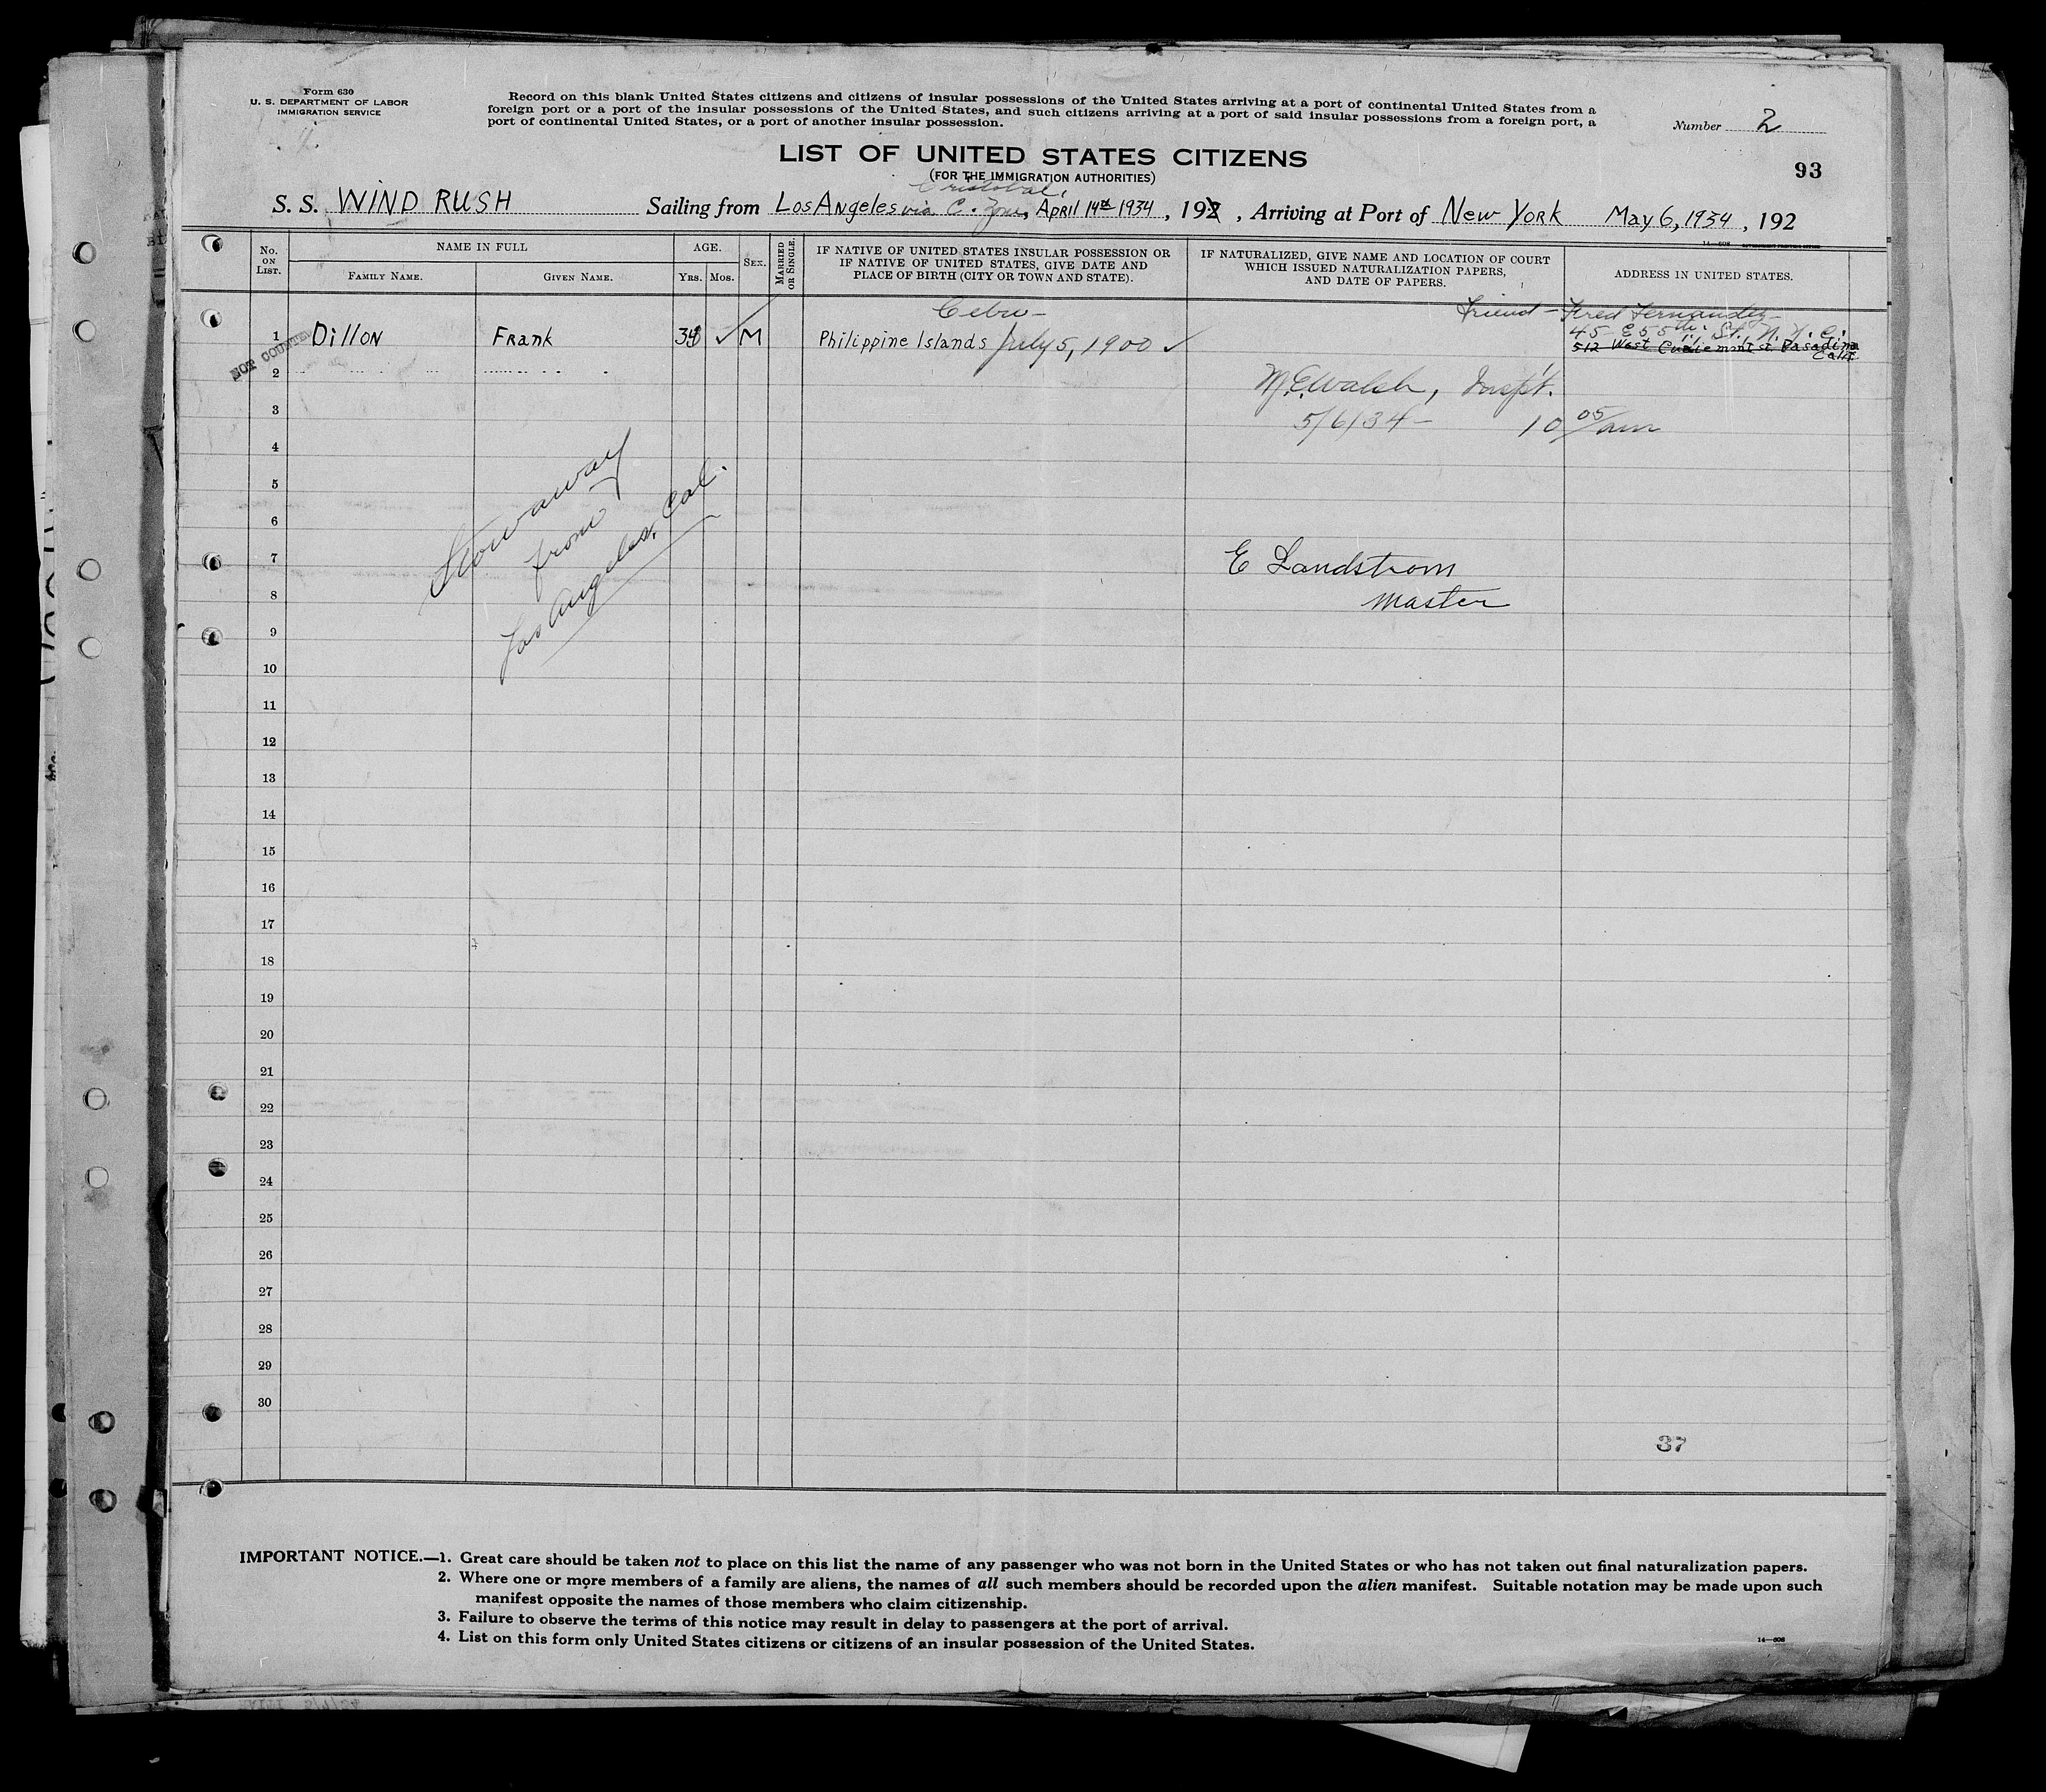 Form 630
U. S. DEPARTMENT OF LABOR
IMMIGRATION SERVICE
Record on this blank United States citizens and citizens of insular possessions of the United States arriving at a port of continental United States from a
foreign port or a port of the insular possessions of the United States, and such citizens arriving at a port of said insular possessions from a foreign port, a
port of continental United States, or a port of another insular possession.
Number 2
LIST OF UNITED STATES CITIZENS
(FOR THE IMMIGRATION AUTHORITIES)
93
Cristobal,
S. S. WIND RUSH Sailing from Los Angeles via C. Zone, April 14th 1934, 192 , Arriving at Port of New York May 6, 1934, 192
14—608 GOVERNMENT PRINTING OFFICE
No. ON LIST.
NAME IN FULL
FAMILY NAME.
GIVEN NAME.
AGE.
YRS.
MOS.
SEX.
MARRIED OR SINGLE.
IF NATIVE OF UNITED STATES INSULAR POSSESSION OR
IF NATIVE OF UNITED STATES, GIVE DATE AND
PLACE OF BIRTH (CITY OR TOWN AND STATE).
IF NATURALIZED, GIVE NAME AND LOCATION OF COURT
WHICH ISSUED NATURALIZATION PAPERS,
AND DATE OF PAPERS.
ADDRESS IN UNITED STATES.
Cebu -
Friend - Fred Fernandez
45 E 55th. St. N. Y. C.
NOT COUNTED
1 Dillon Frank 34 ✓ M Philippine Islands July 5, 1900 ✓
512 West St Pasadina
Calif
2
M. E. Walsh, Inspt.
3
5/6/34 - 10 05/am
4
5
6
Stowaway
from
Los Angeles, Cal.
7
E Landstrom
8
Master
9
10
11
12
13
14
15
16
17
18
19
20
21
22
23
24
25
26
27
28
29
30
37
IMPORTANT NOTICE.—1. Great care should be taken not to place on this list the name of any passenger who was not born in the United States or who has not taken out final naturalization papers.
2. Where one or more members of a family are aliens, the names of all such members should be recorded upon the alien manifest. Suitable notation may be made upon such
manifest opposite the names of those members who claim citizenship.
3. Failure to observe the terms of this notice may result in delay to passengers at the port of arrival.
4. List on this form only United States citizens or citizens of an insular possession of the United States.
14—608